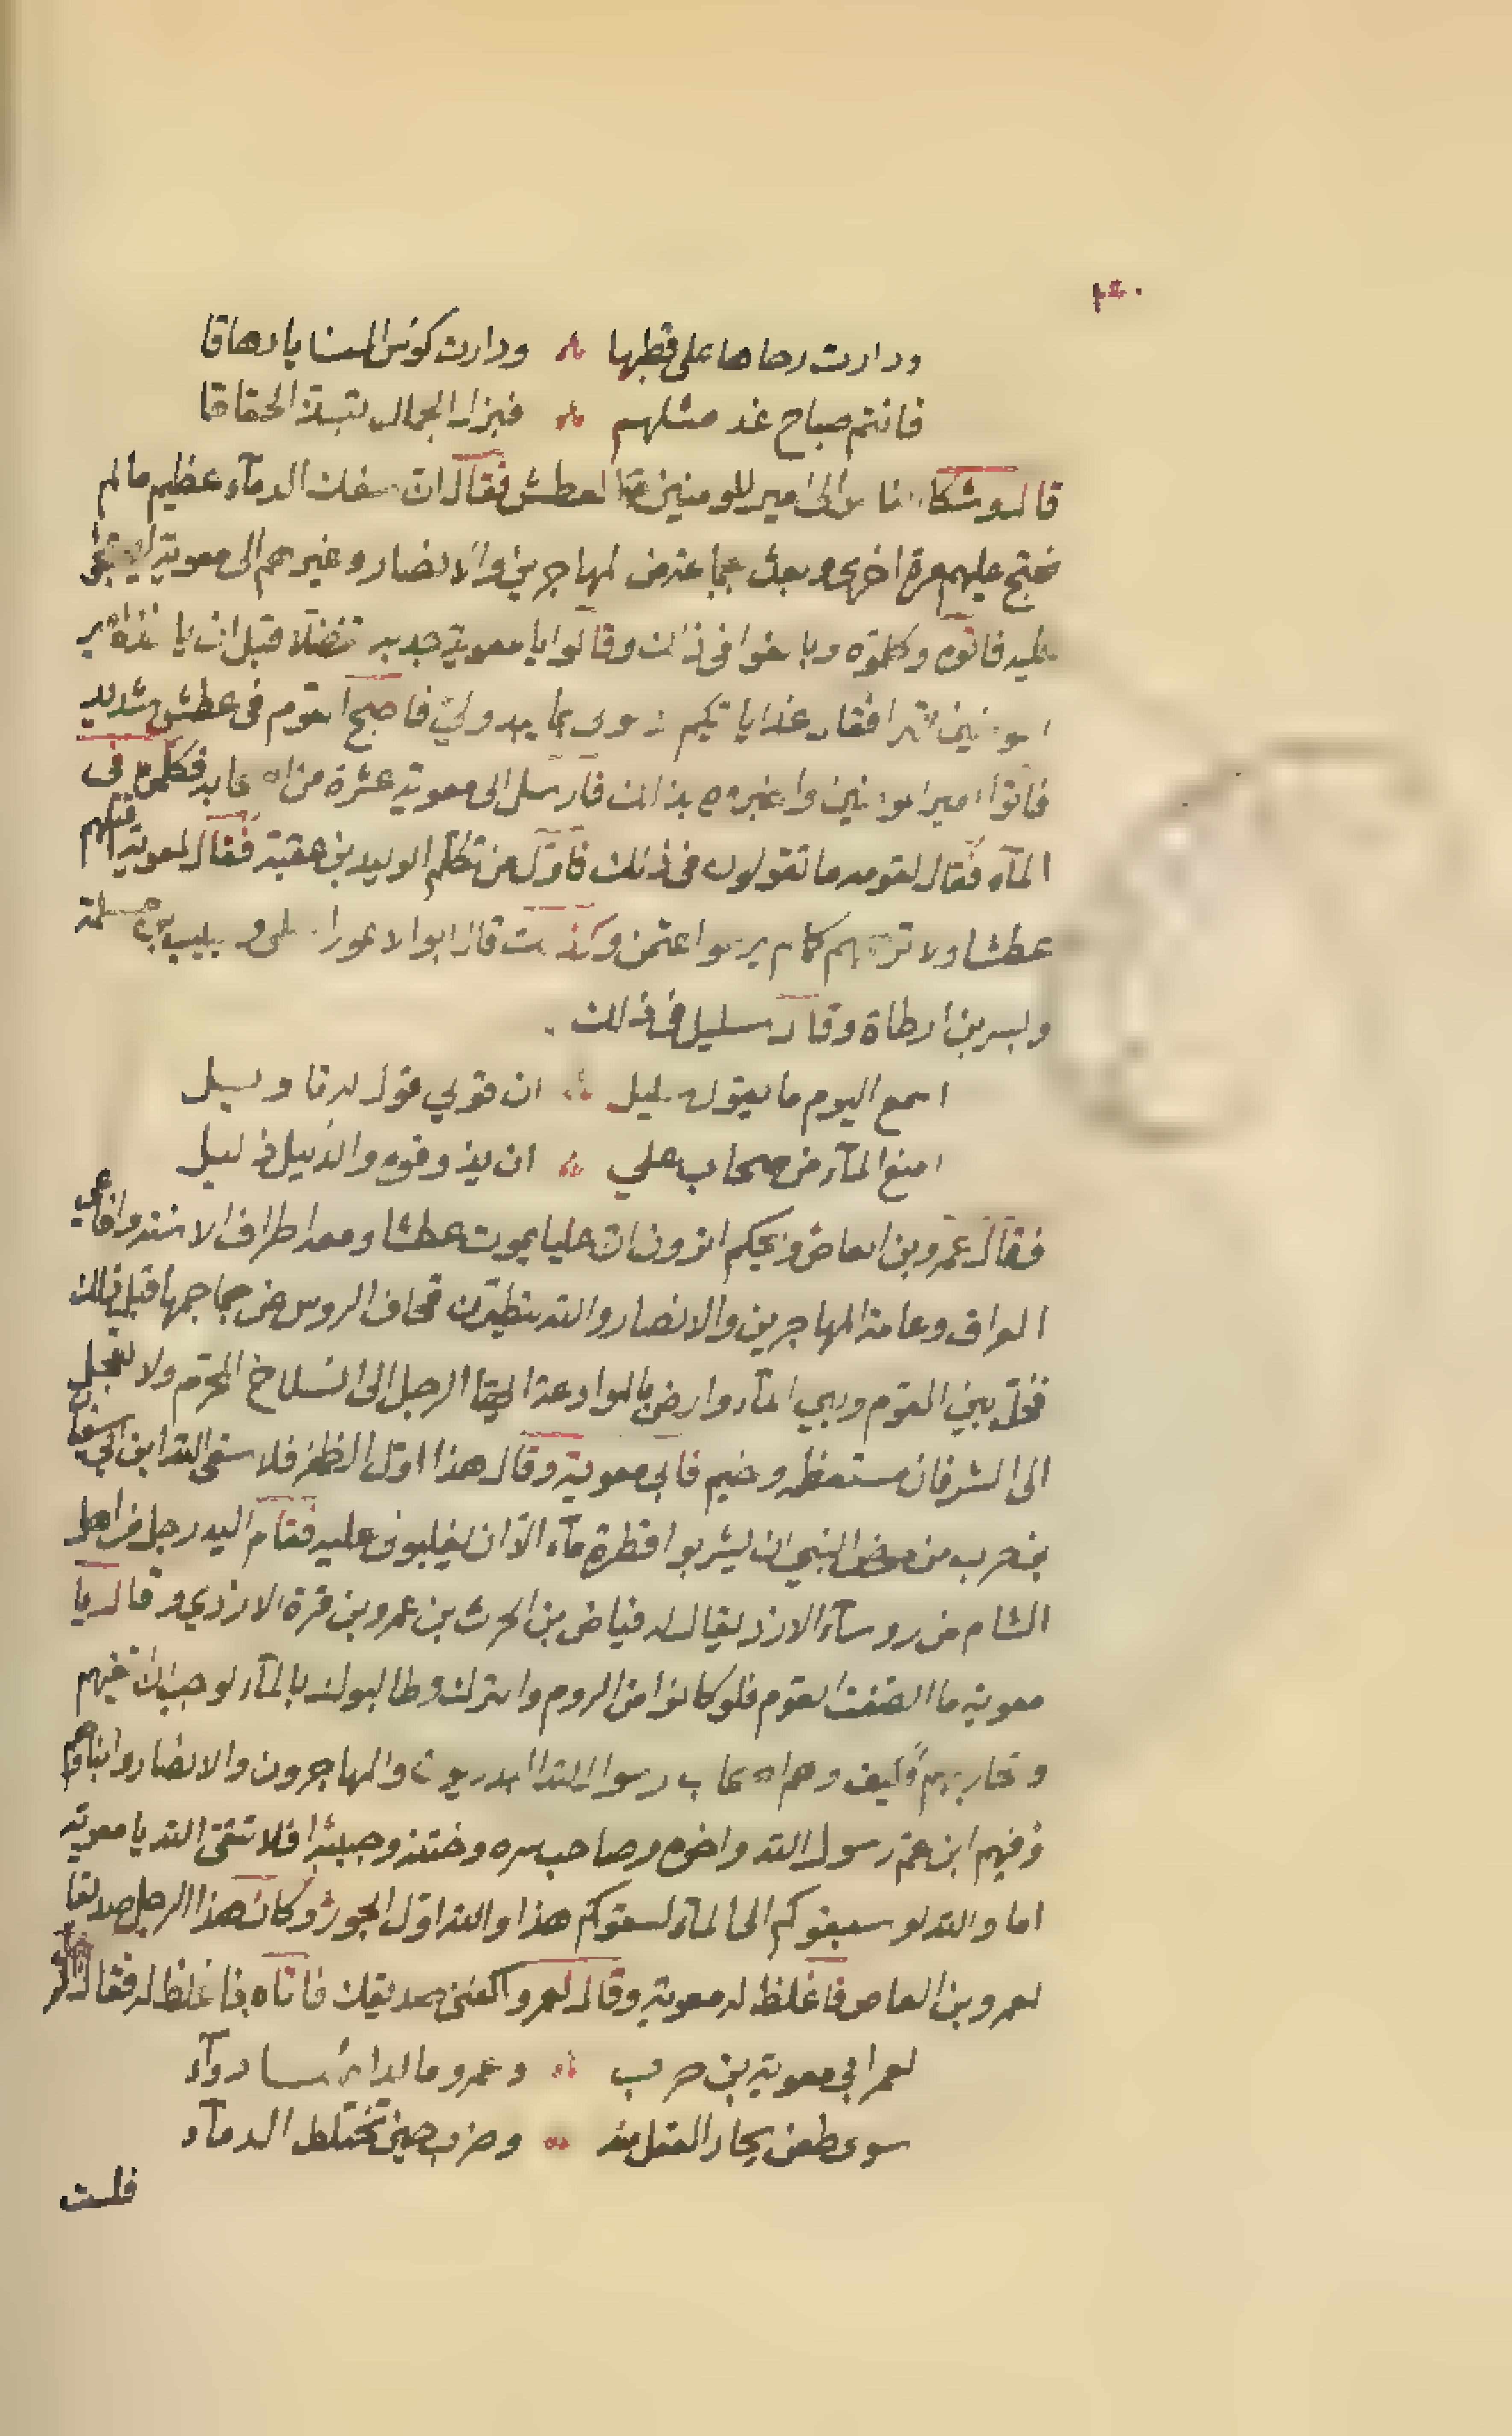 ودارت رحاها على قطبها ودارت كوس المنايا دهاقا
فانتم صباح غد مثلهم فبزل الجمال تبذ الحقاقا
قال وشكا الناس الى امير المومنين العطش فقال ان سفك الدمآء عظيم ما لم
نحتج عليهم مرة اخرى وبعث جماعة من المهاجرين والانصار وغيرهم الى معوية
عليه فاتوه وكلموه وبالغوا في ذلك وقالوا يا معوية جد به تفضلا قبل ان ياخذه
المومنين قهرا فقال غدا ياتيكم رسولي بما يبدو لي فاصبح القوم في عطش شديد
فاتوا امير المومنين واخبروه بذلك فارسل الى معوية عشرة من اصحابه فكلموه في
المآء فقال لقومه ما تقولون في ذلك فاول من تكلم الوليد بن عقبة فقال لمعوية اقتلهم
عطشا ولا ترحمهم كما لم يرحموا عثمن وكذلك قال ابو الاعور السلمي وحبيب بن مسلمة
وبسر بن ارطاة وقال سليل في ذلك
اسمع اليوم ما يقول سليل ان قولي قول له تاويل
امنع المآء من صحاب علي ان يذوقوه والذليل ذليل
فقال عمرو بن العاص ويحكم اترون ان عليا يموت عطشا ومعه اطراف الاسنة وافاعي
العراق وعامة المهاجرين والانصار والله ليطيرن قحاف الروس عن جماجمها قبل ذلك
فخل بين القوم وبين المآء وارض بالموادعة اليقا الرجل الى انسلاخ المحرم ولا تعجل
الى الشر فان مستعظه وخيم فابى معوية وقال هذا اول الظفر فلا سقى الله ابن ابي سفيان
بن حرب من حوض النبي ان يشربوا قطرة مآء الا ان يغلبون عليه فقام اليه رجل من اهل
الشام من روسآء الازد يقال له فياض بن الحرث بن عمرو بن قرة الازدي وقال يا
معوية ما انصفت القوم فلو كانوا من الروم والترك وطالبوك بالمآء لوجب ان تسقيهم
وتحاربهم فكيف وهم اصحاب رسول الله البدريون والمهاجرون والانصار وابناؤهم
وفيهم ابن عم رسول الله واخوه وصاحب سره وختنه وحبيبه افلا تتقي الله يا معوية
اما والله لو سبقوكم الى المآء لسقوكم هذا والله اول الجور وكان هذا الرجل صديقا
لعمرو بن العاص فاغلظ له معوية وقال لعمرو اكفني صديقك فاتاه فاغلظ له فقال
لعمر ابي معوية بن حرب وعمرو ما لدائهما دوآء
سوى طعن يحار العقل منه وضرب حين تختلط الدمآء
فلست